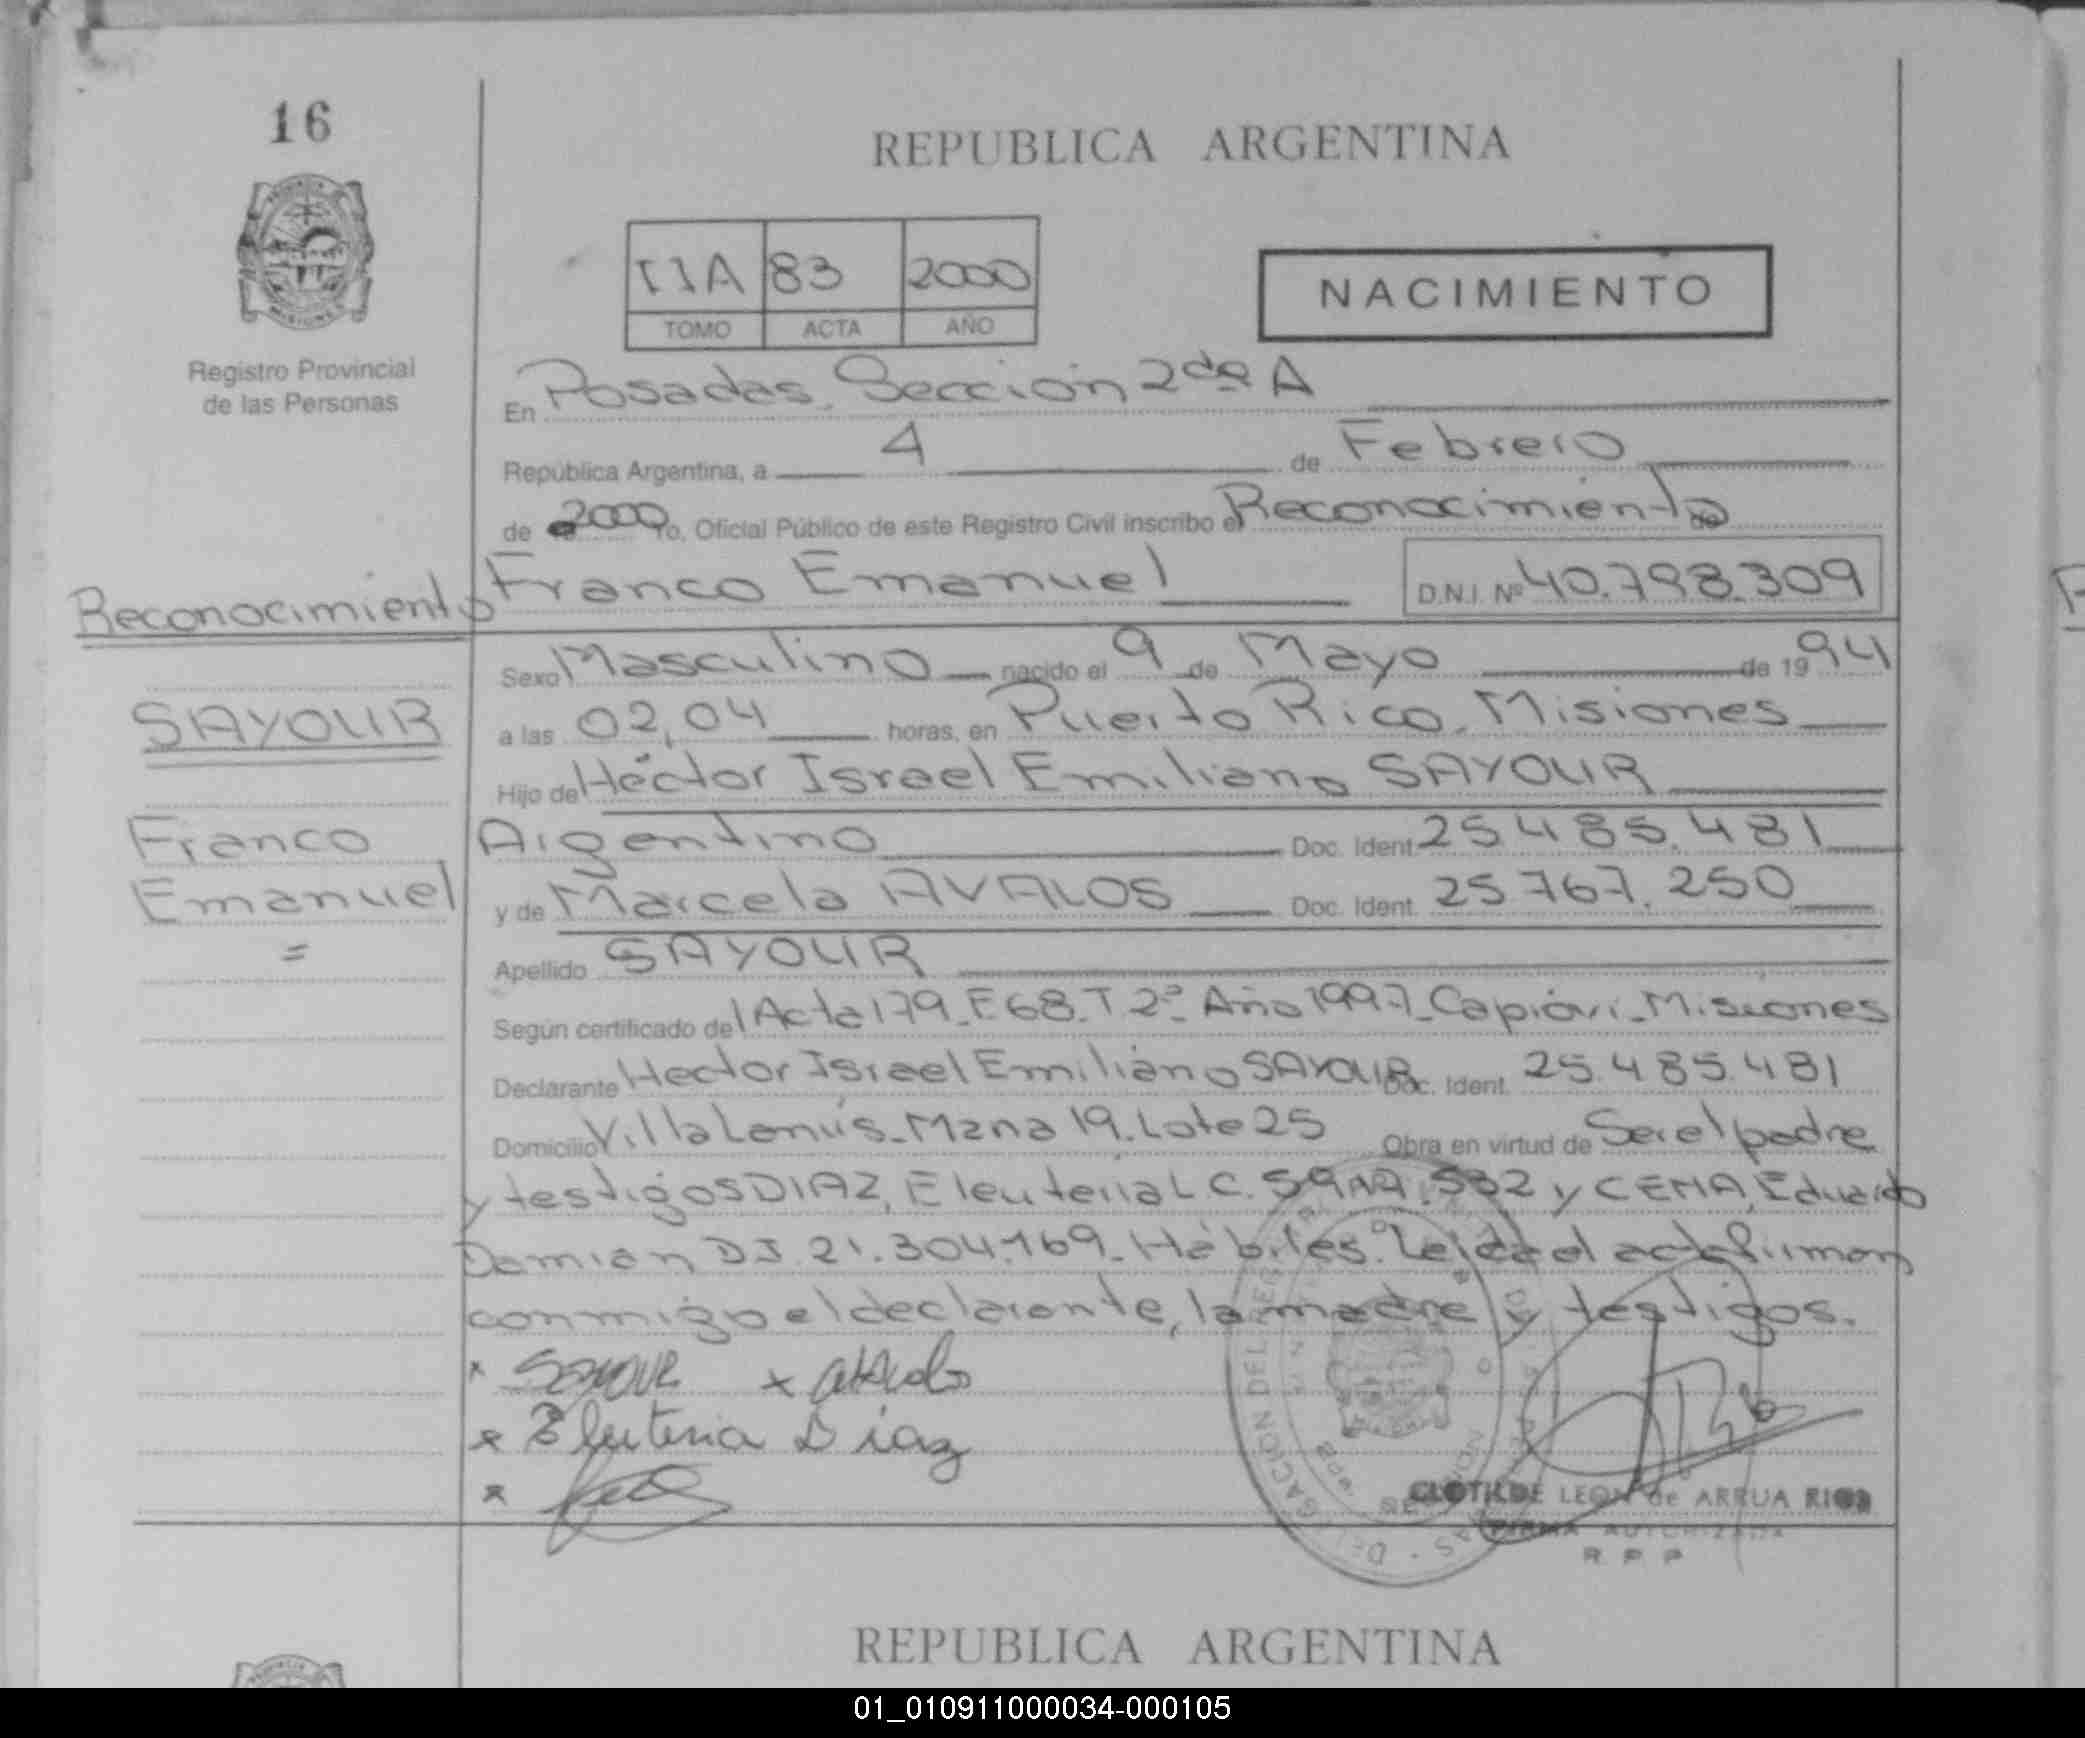 16
REPUBLICA ARGENTINA
IIA 83 2000
TOMO ACTA AÑO
NACIMIENTO
Registro Provincial
de las Personas
En Posadas, Sección 2da A
República Argentina, a 4 de Febrero
de 2000 Yo, Oficial Público de este Registro Civil inscribo el Reconocimiento de
Franco Emanuel D.N.I. Nº 40.798.309
Reconocimiento
SAYOUR
Franco
Emanuel
=
Sexo Masculino nacido el 9 de Mayo de 1994
a las 02,04 horas, en Puerto Rico, Misiones
Hijo de Héctor Israel Emiliano SAYOUR
Argentino Doc. Ident. 25.485.481
y de Marcela AVALOS Doc. Ident. 25.767.250
Apellido SAYOUR
Según certificado del Acta 179_F68_T.2º_Año 1997_Capioví_Misiones
Declarante Hector Israel Emiliano SAYOUR Doc. Ident. 25.485.481
Domicilio Villa Lanús_Mzna 19. Lote 25 Obra en virtud de Ser el padre
y testigos DIAZ, Eleuteria L.C. 532 y CEMA, Eduardo
Damián DI. 21.304.169_Hábiles. Leida el acta firman
conmigo el declarante, la madre y testigos.
x SAYOUR x
x Eleuteria Diaz
x
CLOTILDE LEON de ARRUA RIOS
FIRMA AUTORIZADA
R P P
REPUBLICA ARGENTINA
01_010911000034-000105